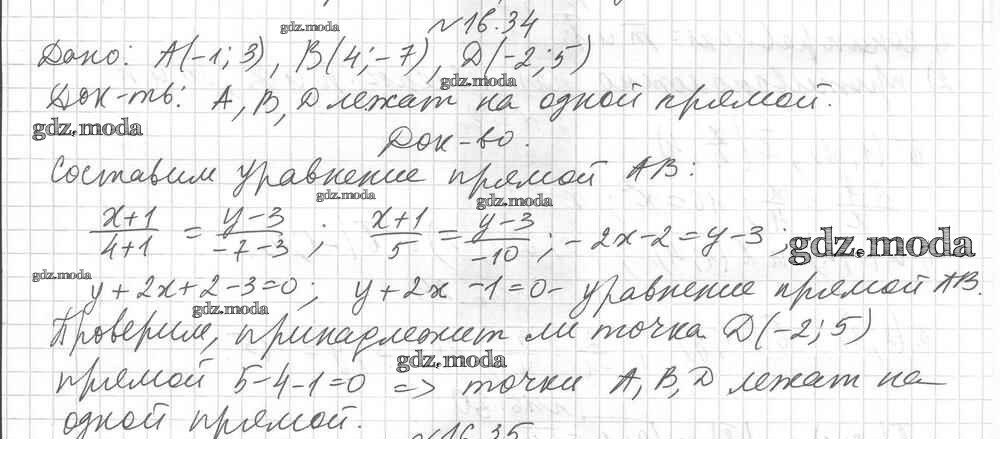 №16.34
gdz.moda
Дано: A(-1; 3), B(4; -7), D(-2; 5)
gdz.moda
Док-ть: A, B, D лежат на одной прямой.
gdz.moda
Док-во.
Составим уравнение прямой AB:
gdz.moda gdz.moda
(x+1)/(4+1) = (y-3)/(-7-3); (x+1)/5 = (y-3)/(-10); -2x-2=y-3;
gdz.moda
gdz.moda
y+2x+2-3=0; y+2x-1=0- уравнение прямой AB.
gdz.moda
Проверим, принадлежит ли точка D(-2; 5)
gdz.moda
прямой 5-4-1=0 => точки A, B, D лежат на
одной прямой.
№16.35